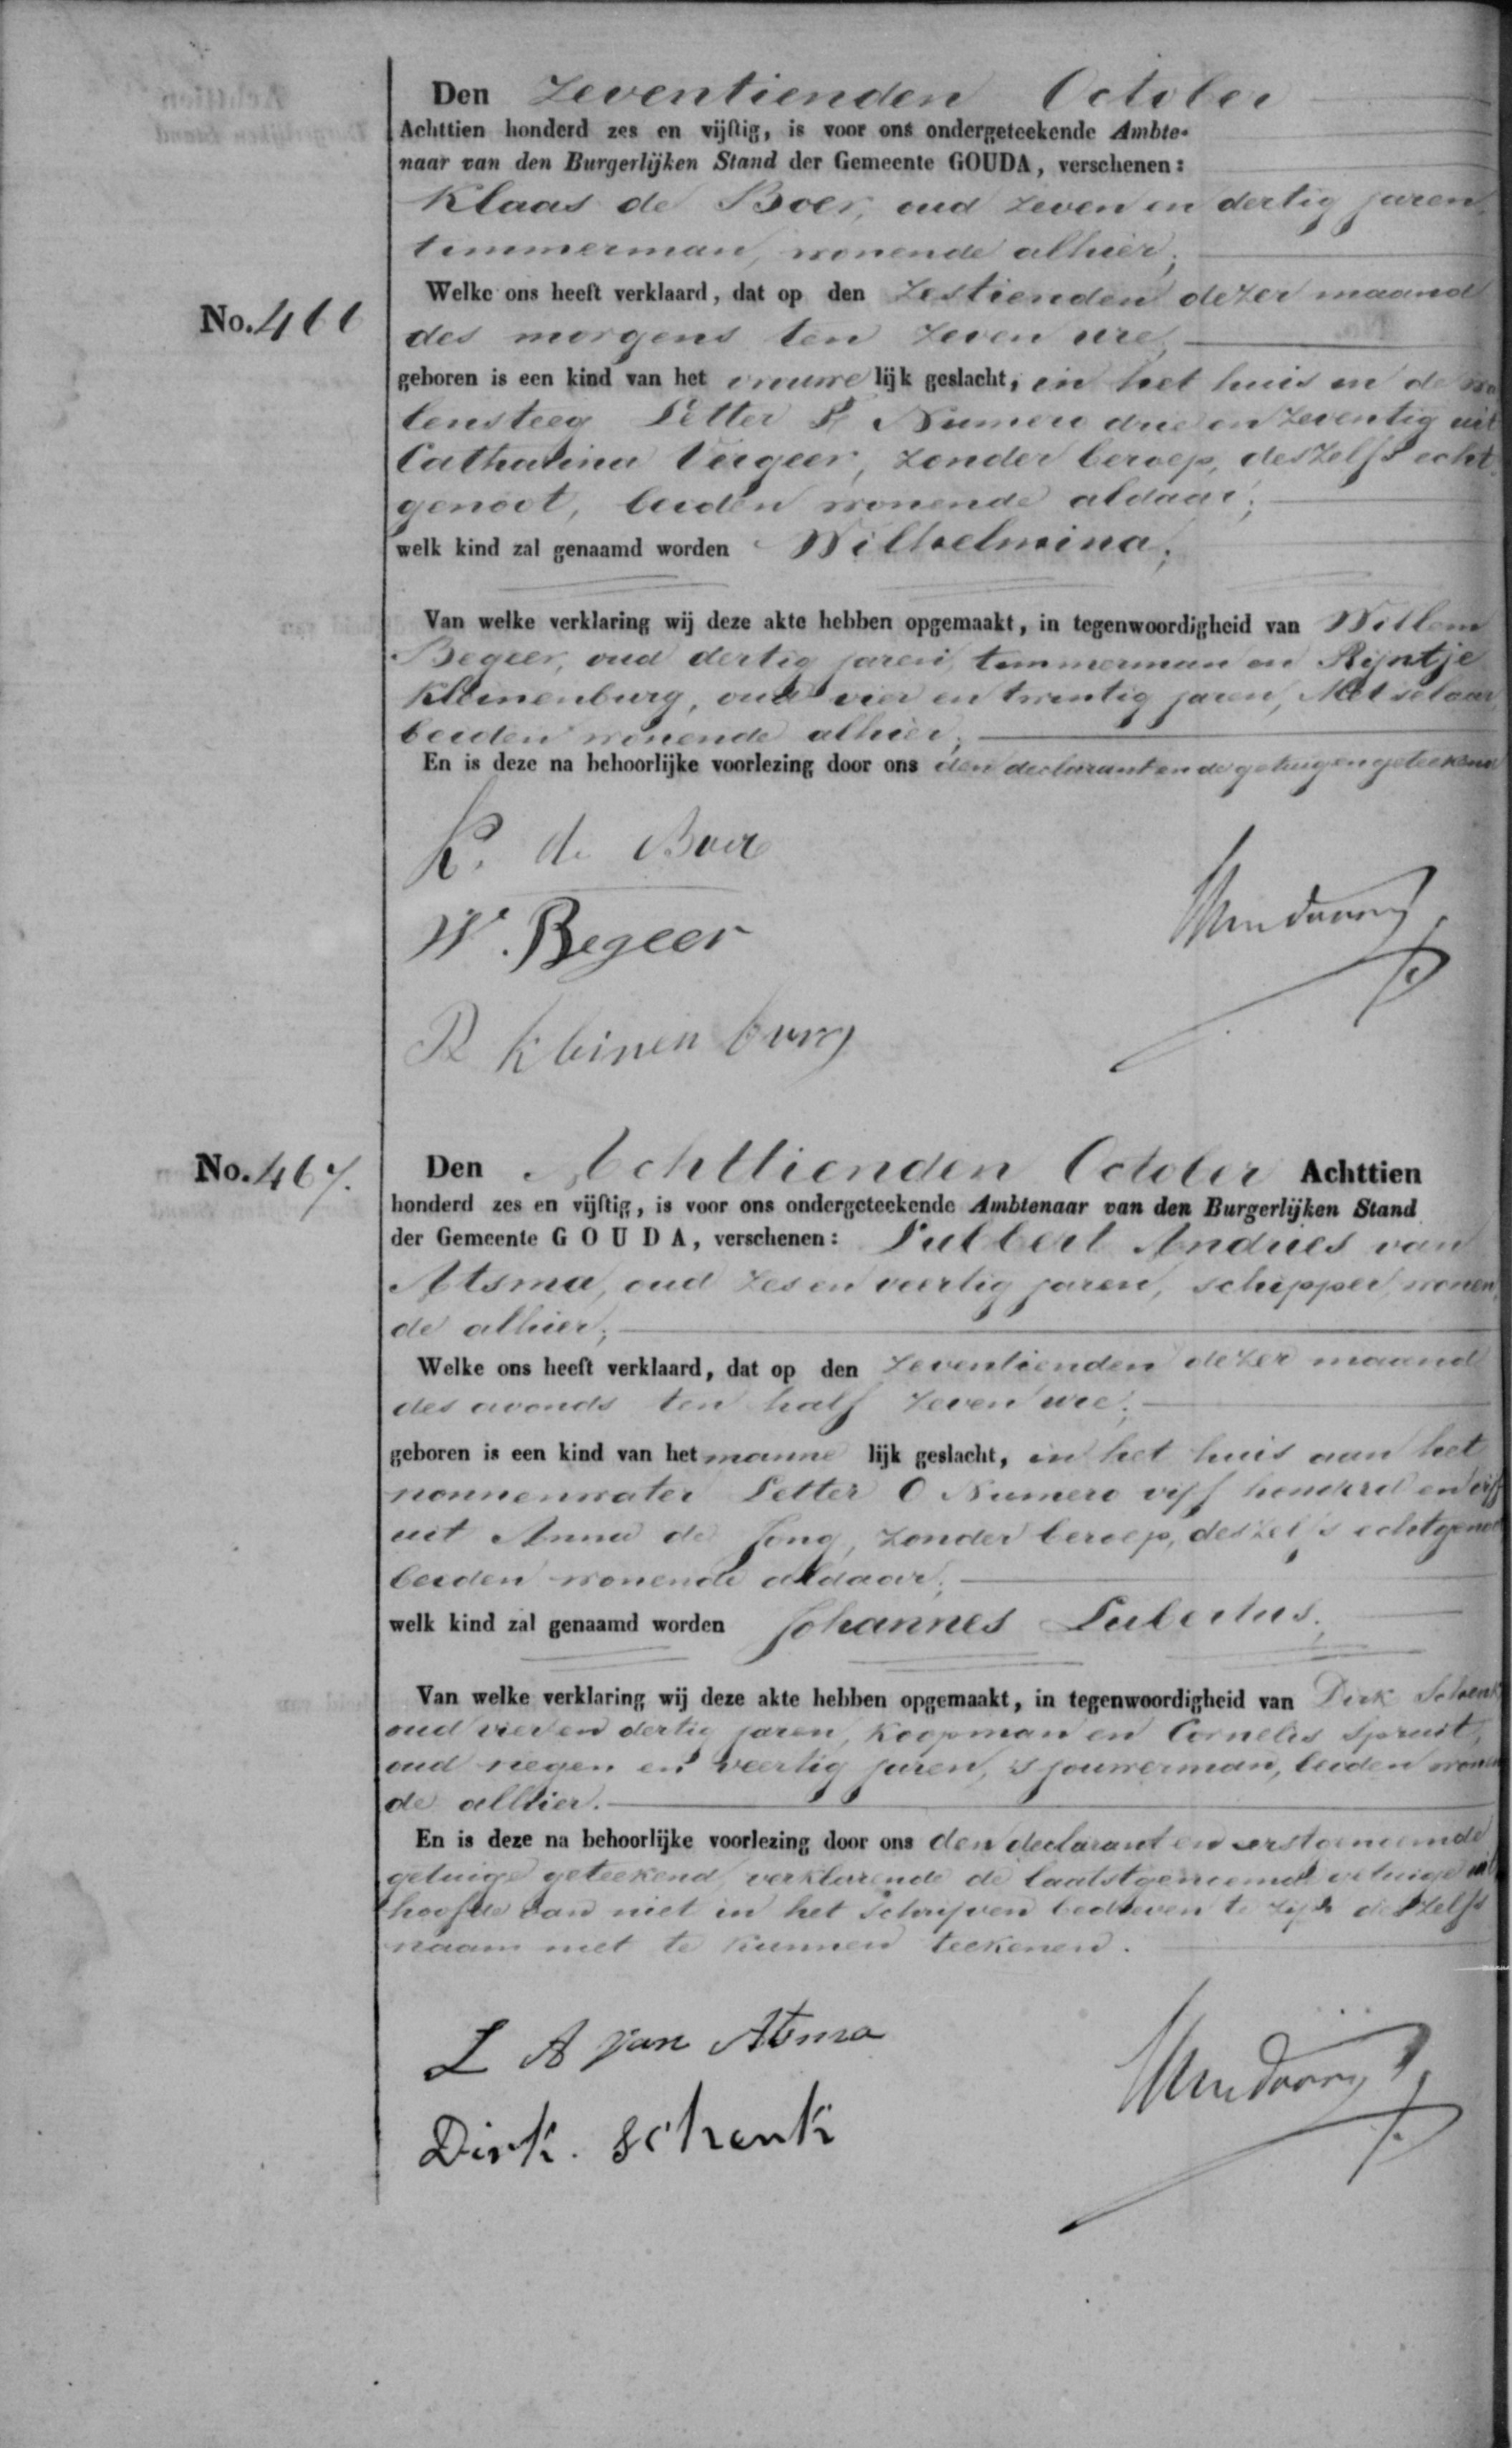 Den Zeventienden October
Achttien honderd zes en vijftig, is voor ons ondergeteekende Ambte-
naar van den Burgerlijken Stand der Gemeente GOUDA, verschenen:
Klaas de Boer, oud zeven en dertig jaren,
timmerman, wonende alhier,
Welke ons heeft verklaard, dat op den zestienden dezer maand
No. 466
des morgens ten zeven ure,
geboren is een kind van het vrouwe lijk geslacht, in het huis in de
lensteeg Letter Numero drie en zeventig uit
Catharina Vergeer, zonder beroep, deszelfs echt
genoot, beiden wonende aldaar;
welk kind zal genaamd worden Wilhelmina;
Van welke verklaring wij deze akte hebben opgemaakt, in tegenwoordigheid van Willem
Begeer, oud dertig jaren, timmerman en Rijntje
Kleinenburg, oud vier en twintig jaren, Metselaar,
beiden wonende alhier;
En is deze na behoorlijke voorlezing door ons den declarant en de getuigen geteekend
K. de Boer
W. Begeer
R Kleinenburg
No. 467.
Den Achttienden October Achttien
honderd zes en vijftig, is voor ons ondergeteekende Ambtenaar van den Burgerlijken Stand
der Gemeente GOUDA, verschenen: Lubbert Andries van
Atsma, oud zes en veertig jaren, schipper, wonen,
de alhier;
Welke ons heeft verklaard, dat op den zeventienden dezer maand
des avonds ten half zeven ure;
geboren is een kind van het manne lijk geslacht, in het huis aan het
nonnenwater Letter O Numero vijf honderd en vijf
uit Anna de Jong, zonder beroep, deszelfs echtgenoot
beiden wonende aldaar;
welk kind zal genaamd worden Johannes Lubertus;
Van welke verklaring wij deze akte hebben opgemaakt, in tegenwoordigheid van Dirk Schenk
oud vier en dertig jaren, Koopman en Cornelis Spruit,
oud negen en veertig jaren, sjouwerman, beiden wonen
de alhier.
En is deze na behoorlijke voorlezing door ons den declarant en eerstgenoemde
getuige geteekend, verklarende de laatstgenoemde getuige uit
hoofde van niet in het schrijven bedreven te zijn deszelfs
naam niet te kunnen teekenen.
L A van Atsma
Dirk. Schenk